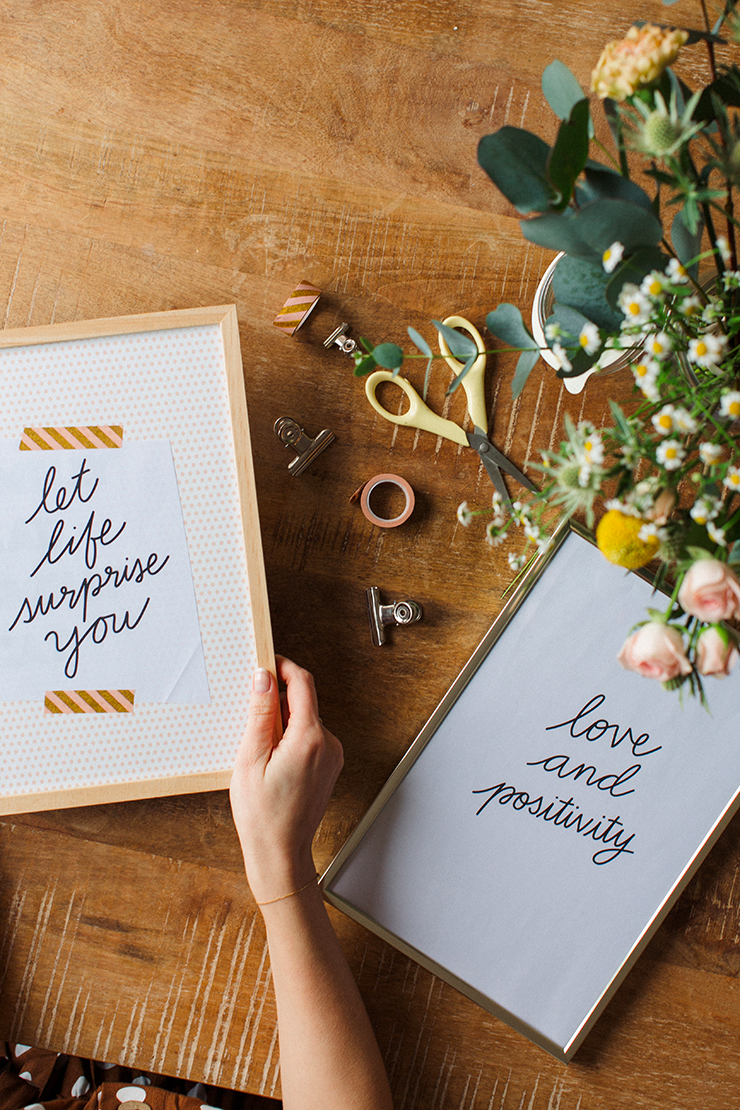 let
life
surprise
you
love
and
positivity